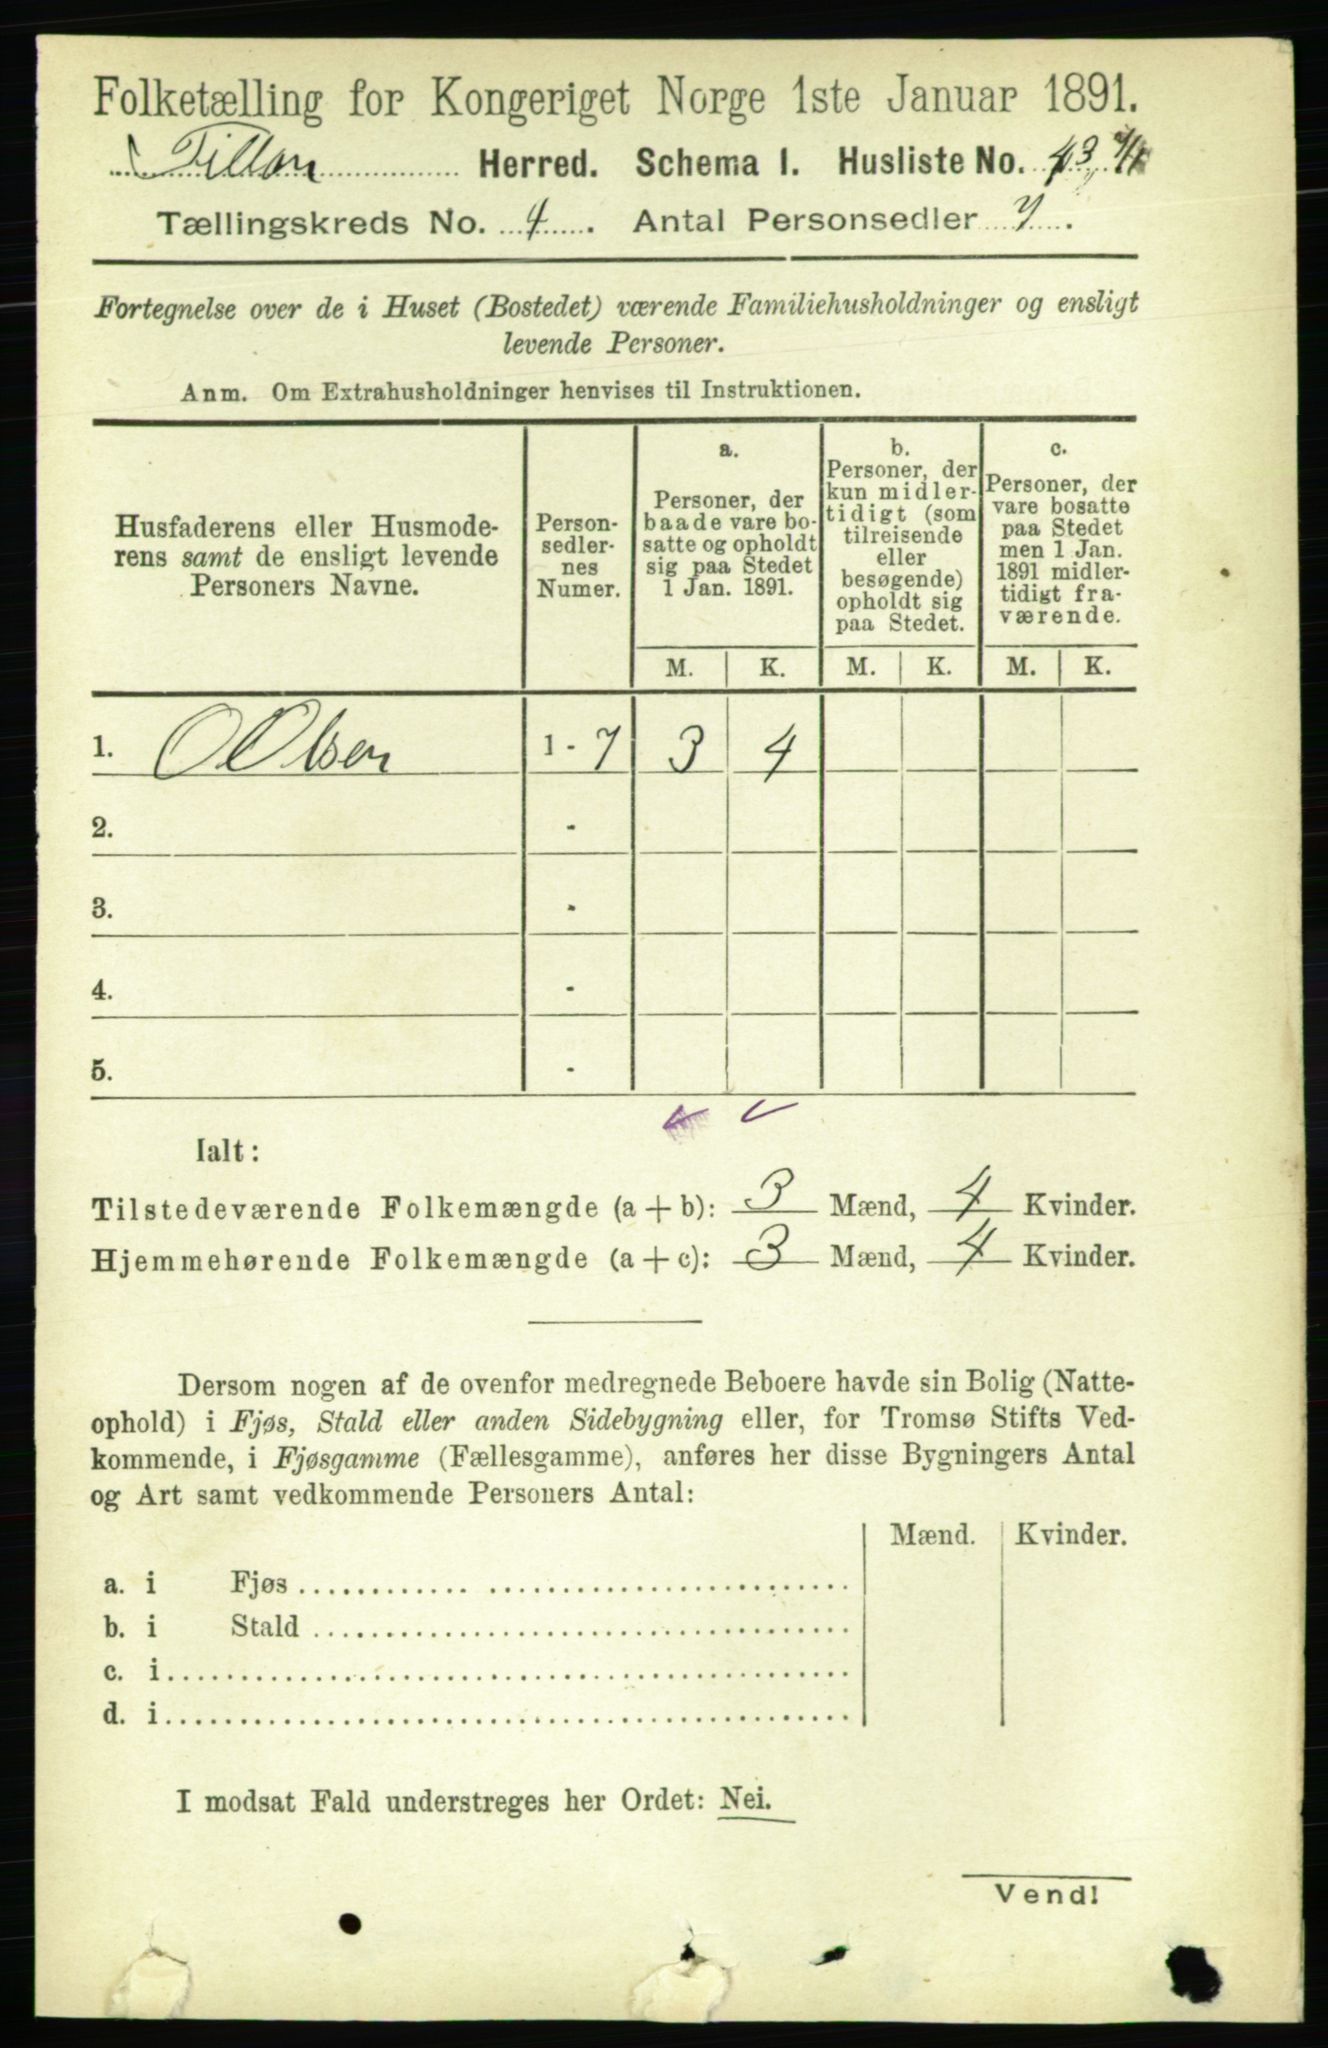 Folketælling for Kongeriget Norge 1ste Januar 1891.
Tiller Herred. Schema I. Husliste No. 43
Tællingskreds No. 4. Antal Personsedler 7.
Fortegnelse over de i Huset (Bostedet) værende Familiehusholdninger og ensligt
levende Personer.
Anm. Om Extrahusholdninger henvises til Instruktionen.
Husfaderens eller Husmode-
rens samt de ensligt levende
Personers Navne.
Person-
sedler-
nes
Numer.
a.
Personer, der
baade vare bo-
satte og opholdt
sig paa Stedet
1 Jan. 1891.
b.
Personer, der
kun midler-
tidigt (som
tilreisende
eller
besøgende)
opholdt sig
paa Stedet.
c.
Personer, der
vare bosatte
paa Stedet
men 1 Jan.
1891 midler-
tidigt fra-
værende.
M. K. M. K. M. K.
1. O Olsen 1 - 7 3 4
2. -
3. -
4. -
5. -
Ialt:
Tilstedeværende Folkemængde (a + b): 3 Mænd, 4 Kvinder.
Hjemmehørende Folkemængde (a + c): 3 Mænd, 4 Kvinder.
Dersom nogen af de ovenfor medregnede Beboere havde sin Bolig (Natte-
ophold) i Fjøs, Stald eller anden Sidebygning eller, for Tromsø Stifts Ved-
kommende, i Fjøsgamme (Fællesgamme), anføres her disse Bygningers Antal
og Art samt vedkommende Personers Antal:
Mænd. Kvinder.
a. i Fjøs
b. i Stald
c. i
d. i
I modsat Fald understreges her Ordet: Nei.
Vend!